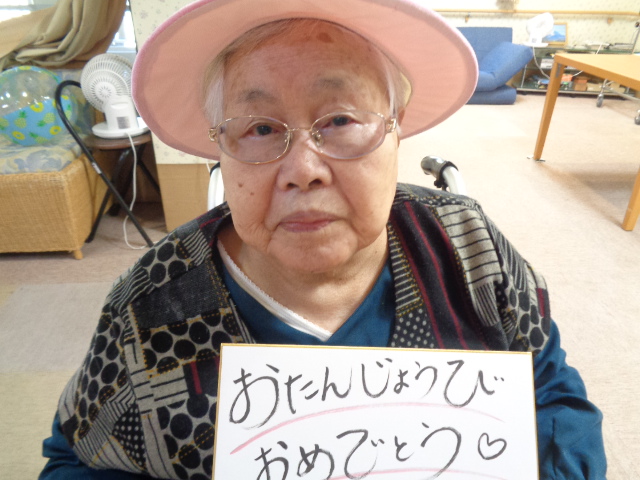 おたんじょうび
おめでとう♡